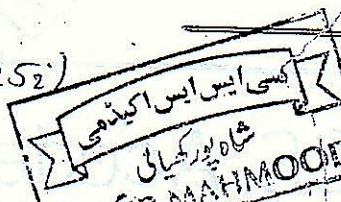 S2')
سی ایس ایس اکیڈمی
شاہ پور کھیالی
MAHMOOD